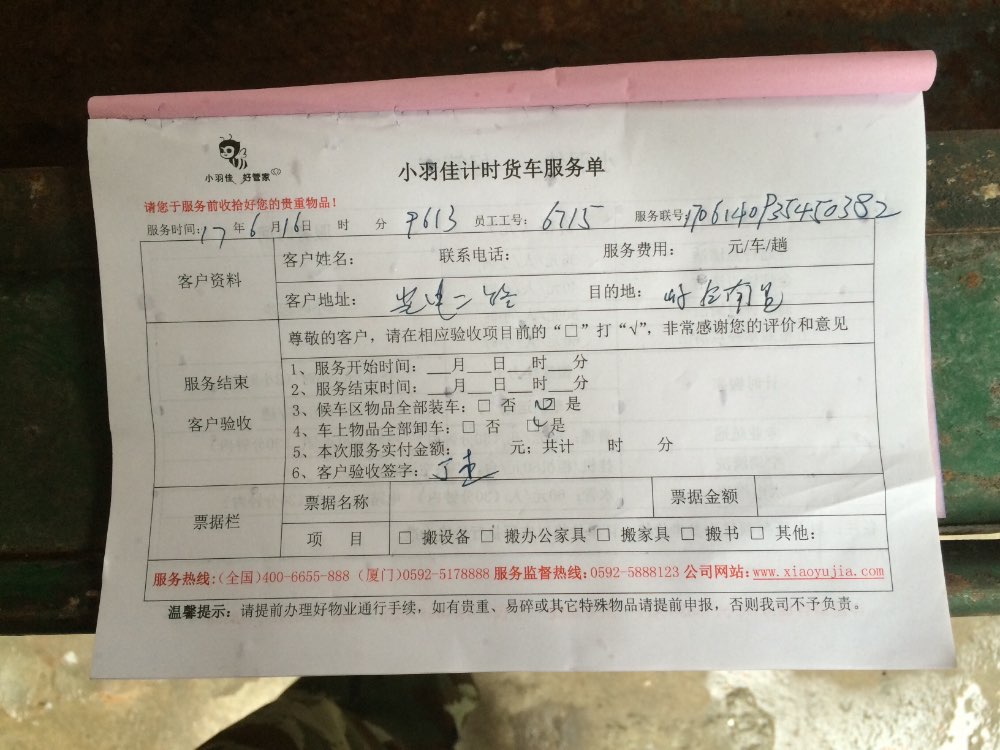 小羽佳 好管家
小羽佳计时货车服务单
请您于服务前收拾好您的贵重物品！
服务时间：17年6月16日 时 分 员工工号：6715 服务联号：
客户资料
客户姓名： 联系电话： 服务费用： 元/车/趟
客户地址： 光电二路 目的地：
服务结束
客户验收
尊敬的客户，请在相应验收项目前的“□”打“√”，非常感谢您的评价和意见
1、服务开始时间：___月___日___时___分
2、服务结束时间：___月___日___时___分
3、候车区物品全部装车：□ 否 ☑ 是
4、车上物品全部卸车：□ 否 ☑ 是
5、本次服务实付金额： 元；共计 时 分
6、客户验收签字：
票据栏
票据名称 票据金额
项 目 □ 搬设备 □ 搬办公家具 □ 搬家具 □ 搬书 □ 其他：
服务热线：(全国)400-6655-888 (厦门)0592-5178888 服务监督热线：0592-5888123 公司网站：www.xiaoyujia.com
温馨提示：请提前办理好物业通行手续，如有贵重、易碎或其它特殊物品请提前申报，否则我司不予负责。